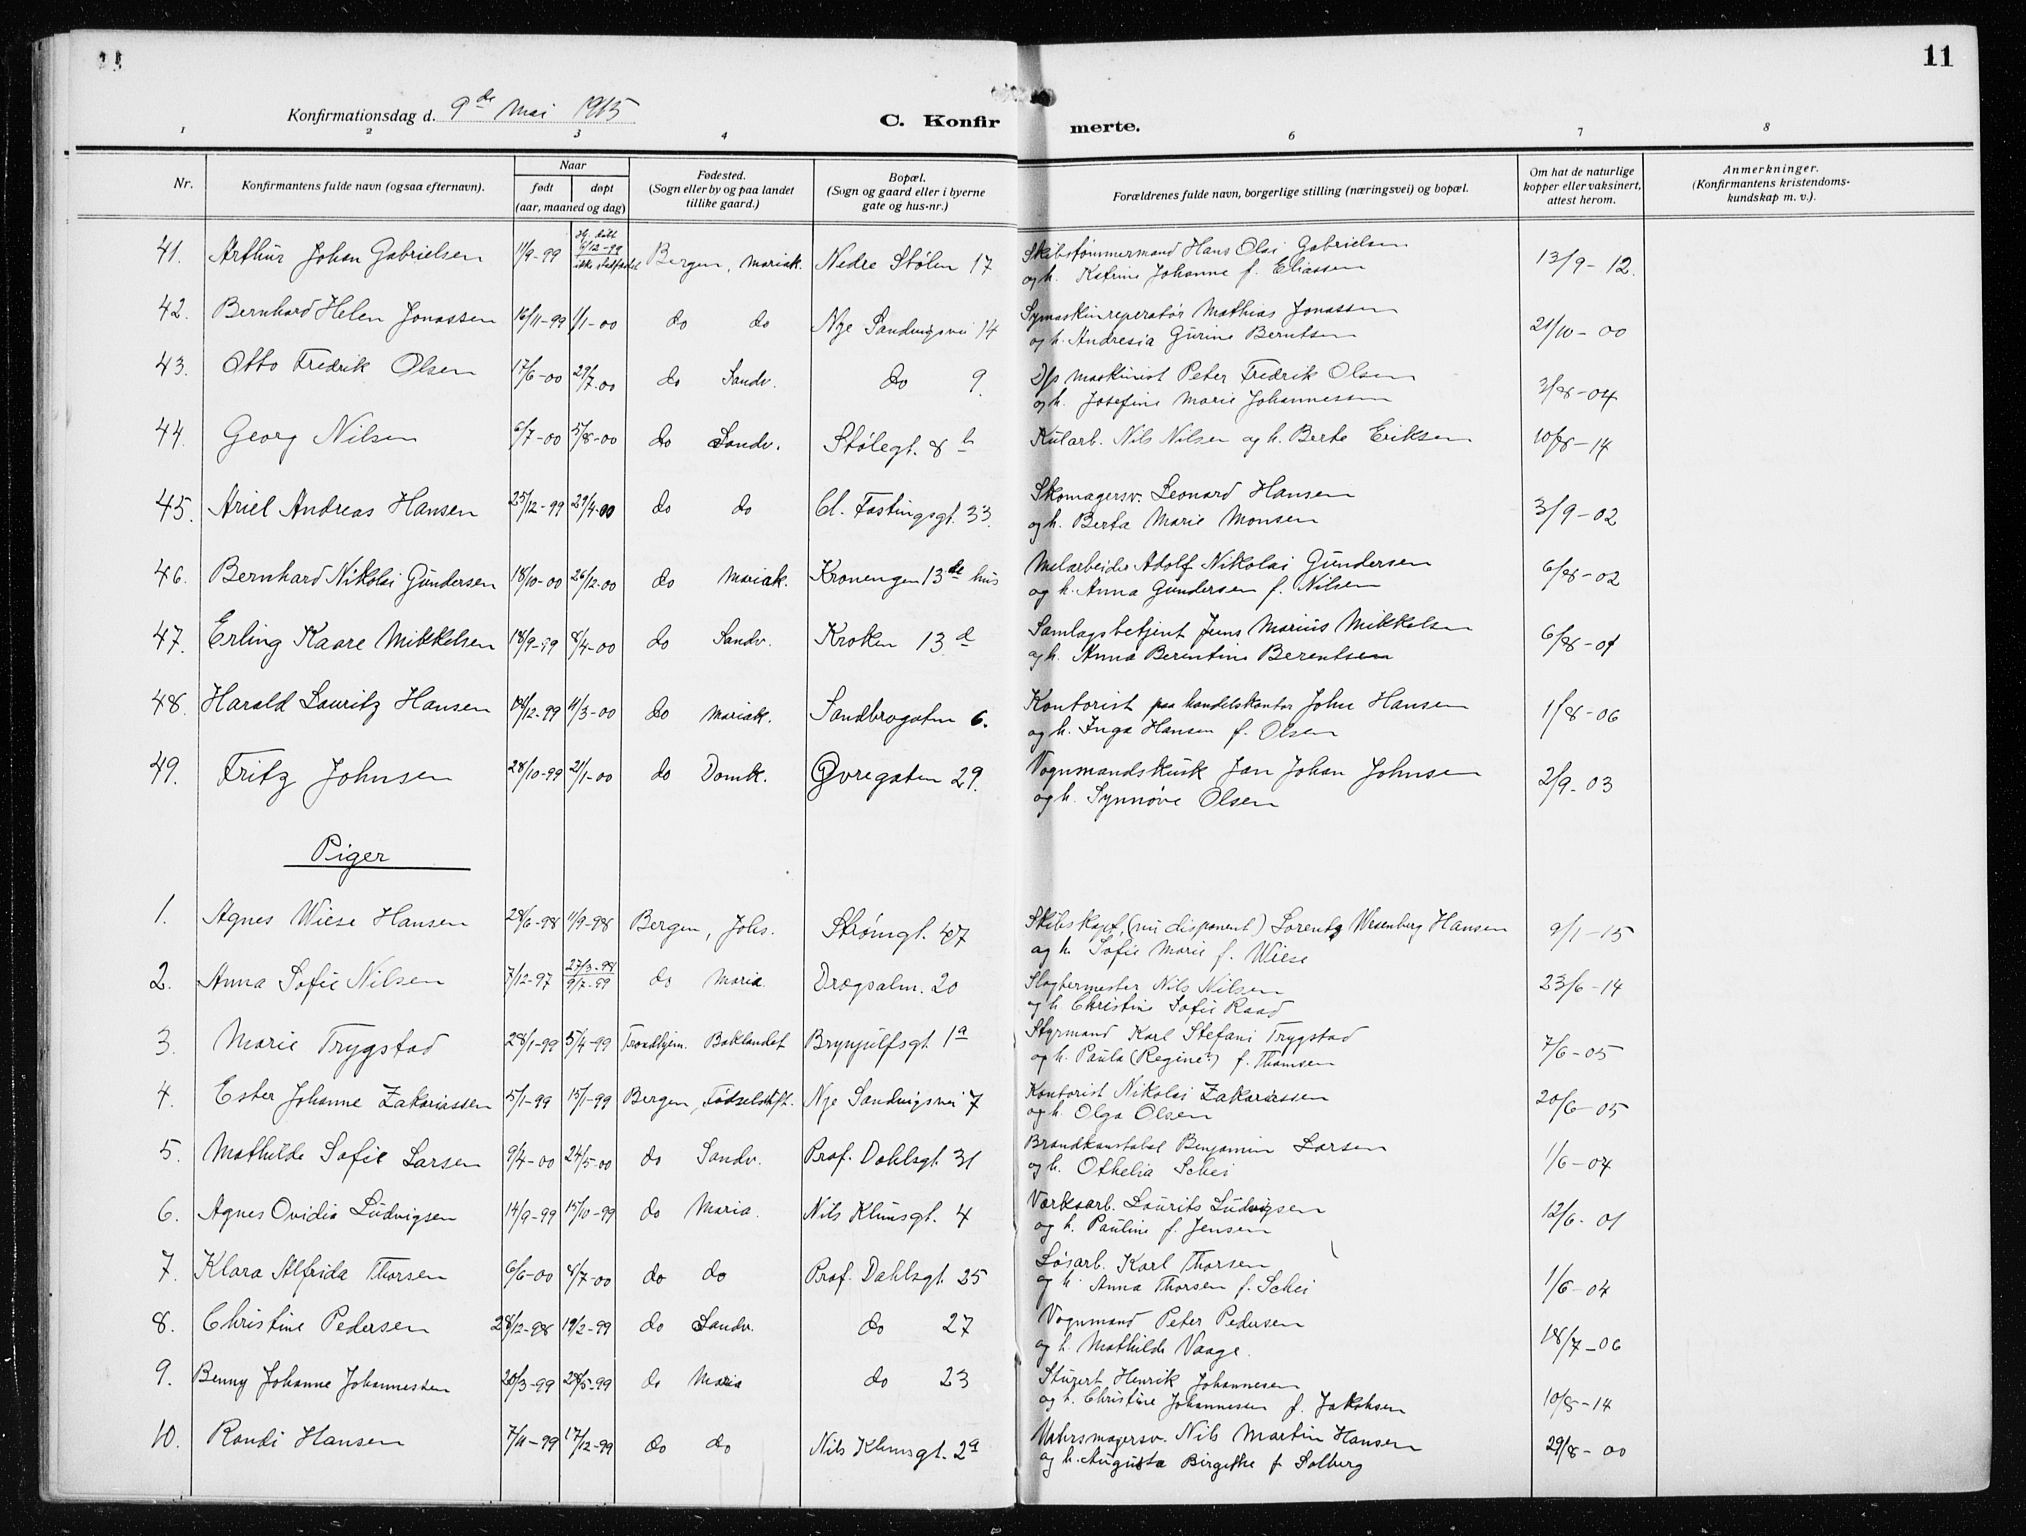 11
Konfirmationsdag d. 9de Mai 1915
C. Konfirmerte.
1 2 3 4 6 7 8
Nr.
Konfirmantens fulde navn (ogsaa efternavn).
Naar
født døpt
(aar, maaned og dag)
Fødested.
(Sogn eller by og paa landet
tillike gaard.)
Bopæl.
(Sogn og gaard eller i byerne
gate og hus-nr.)
Forældrenes fulde navn, borgerlige stilling (næringsvei) og bopæl.
Om hat de naturlige
kopper eller vaksinert,
attest herom.
Anmerkninger.
(Konfirmantens kristendoms-
kundskap m. v.).
41. Arthur Johan Gabrielsen 11/9-99 6/12-99 Bergen, Mariak. Nedre Stølen 17 Skibstømmermand Hans Olai Gabrielsen
og h. Katrine Johanne f. Eliassen 13/9-12.
42. Bernhard Helen Jonassen 16/11-99 1/1-00 do do Nye Sandvigsvei 14 Symaskinreperatør Mathias Jonassen
og h. Andresia Gurine Berntsen 21/10-00
43. Otto Fredrik Olsen 17/6-00 29/7-00 do Sandv. do 9. D/s maskinist Peter Fredrik Olsen
og h. Josefine Marie Johannessen 3/8-04
44. Georg Nilsen 6/7-00 5/8-00 do Sandv. Stølegt. 8 b Kularb. Nils Nilsen og h. Berte Eriksen 10/8-14
45. Ariel Andreas Hansen 25/12-99 29/4-00 do do Cl. Fastingsgt. 33. Skomagersv. Leonard Hansen
og h. Berta Marie Monsen 3/9-02
46. Bernhard Nikolai Gundersen 18/10-00 26/12-00 do Mariak. Kronengen 13de hus Melarbeider Adolf Nikolai Gundersen
og h. Anna Gundersen f. Nilsen 6/8-02
47. Erling Kaare Mikkelsen 18/9-99 8/4-00 do Sandv. Kroken 13 d Samlagsbetjent Jens Marius Mikkelsen
og h. Anna Berentine Berentsen 6/8-01
48. Harald Lauritz Hansen /12-99 11/3-00 do Mariak. Sandbrogaten 6. Kontorist paa handelskontor John Hansen
og h. Inga Hansen f. Olsen 1/8-06
49. Fritz Johnsen 28/10-99 21/1-00 do Domk. Øvregaten 29. Vognmandskusk Jan Johan Johnsen
og h. Synnøve Olsen 2/9-03
Piger
1. Agnes Wiese Hansen 28/6-98 11/9-98 Bergen, Johs. Strømgt. 47 Skibskapt. (nu disponent) Lorentz Wesenberg Hansen
og h. Sofie Marie f. Wiese 9/1-15
2. Anna Sofie Nilsen 7/12-97 27/3-98 9/7-99 do Maria Dregsalm. 20 Slagtermester Nils Nilsen
og h Christine Sofie Raad 23/6-14
3. Marie Trygstad 28/1-99 5/4-99 Trondhjem. Baklandet Brynjulfsgt. 1a Styrmand Karl Stefani Trygstad
og h. Paula (Regine?) f. Thomsen 7/6-05
4. Ester Johanne Zakariassen 5/1-99 15/1-99 Bergen, Fødselstift. Nye Sandvigsvei 7 Kontorist Nikolai Zakariassen
og h Olga Olsen 20/6-05
5. Mathilde Sofie Larsen 9/4-00 24/5-00 do Sandv. Prof. Dahlsgt. 31 Brandkonstabel Benjamin Larsen
og h. Othelia Schei 1/6-04
6. Agnes Ovidia Ludvigsen 14/9-99 15/10-99 do Maria. Nils Klimsgt. 4 Verksarb. Laurits Ludvigsen
og h. Pauline f. Jensen 12/6-01
7. Klara Alfrida Thorsen 6/6-00 8/7-00 do do Prof. Dahlsgt. 25 Løsarb. Karl Thorsen
og h. Anna Thorsen f. Schei 1/6-04
8. Christine Pedersen 28/12-98 19/2-99 do Sandv. do 27 Vognmand Peter Pedersen
og h. Mathilde Vaage. 18/7-06
9. Benny Johanne Johannessen 20/3-99 28/5-99 do Maria do 23 Stuert Henrik Johannesen
og h. Christine Johannessen f. Jakobsen 10/8-14
10. Randi Hansen 7/11-99 17/12-99 do do Nils Klimsgt. 2a Uhrmagersv. Nils Martin Hansen
og h. Augusta Birgithe f Solberg 29/8-00